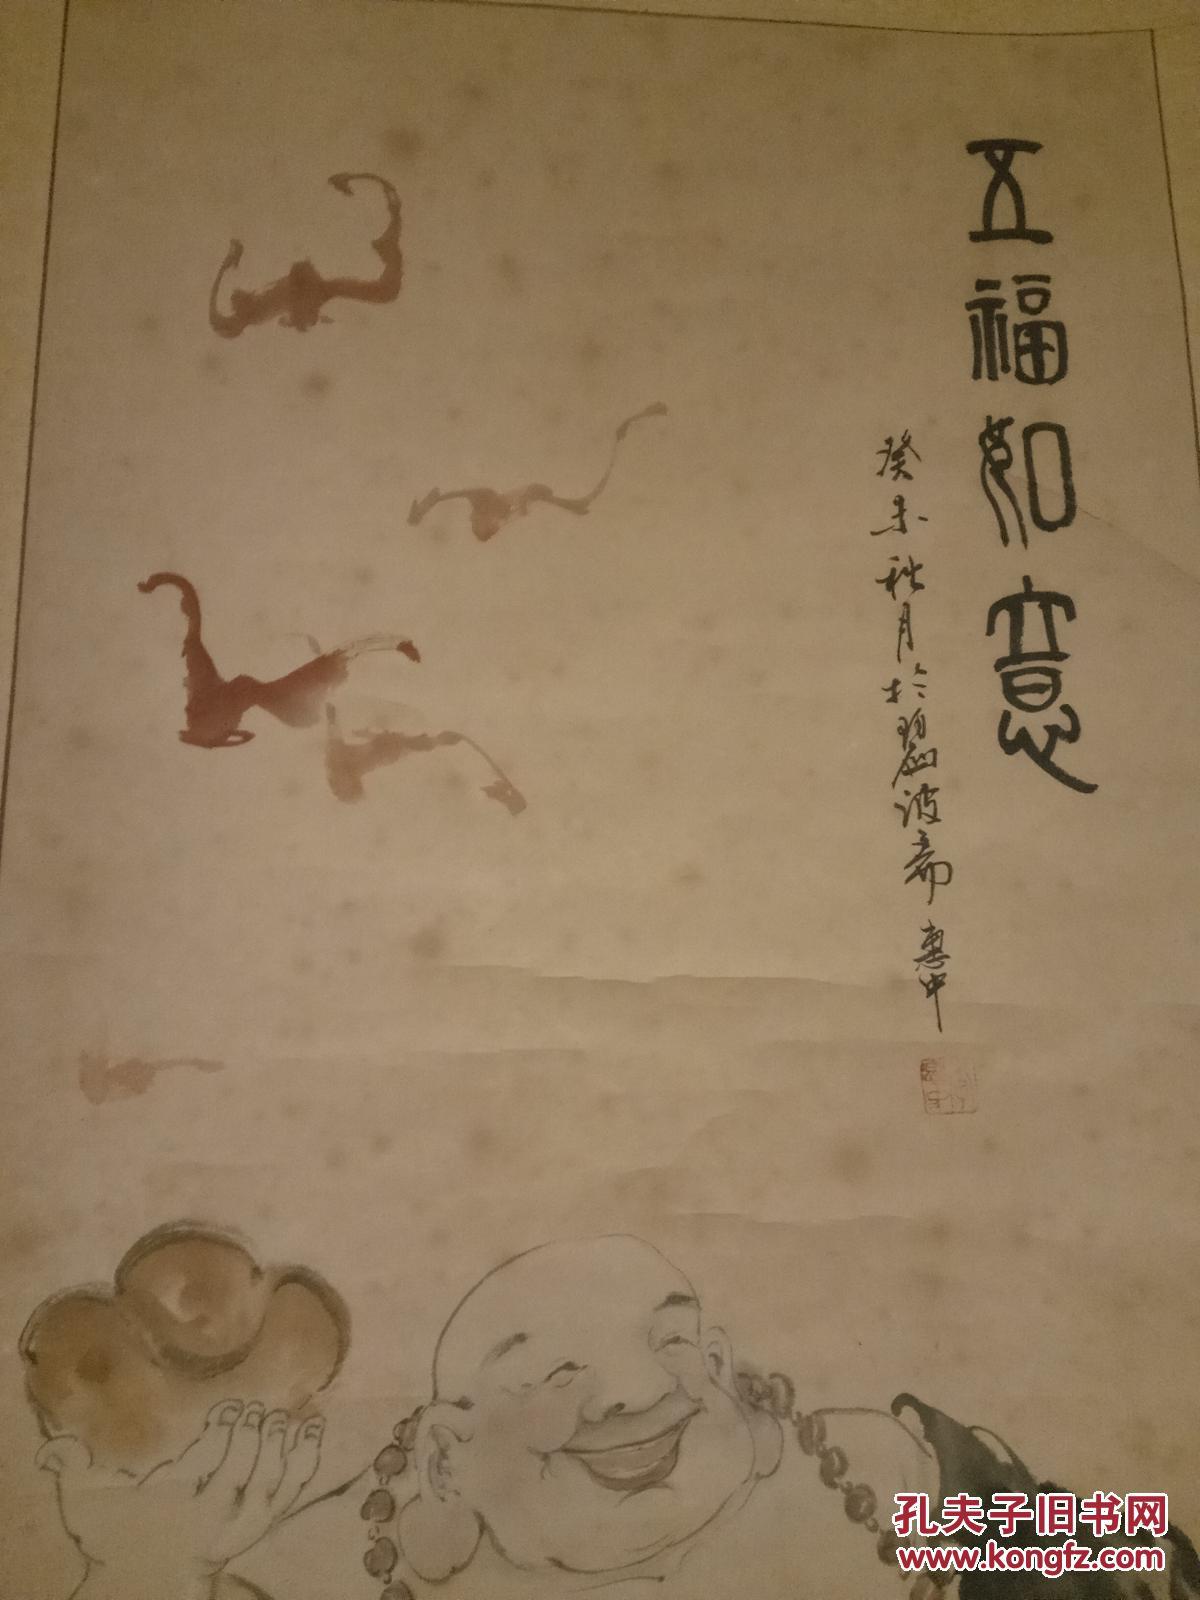 五福如意
癸未秋月於碧波斋 惠中
孔夫子旧书网
www.kongfz.com